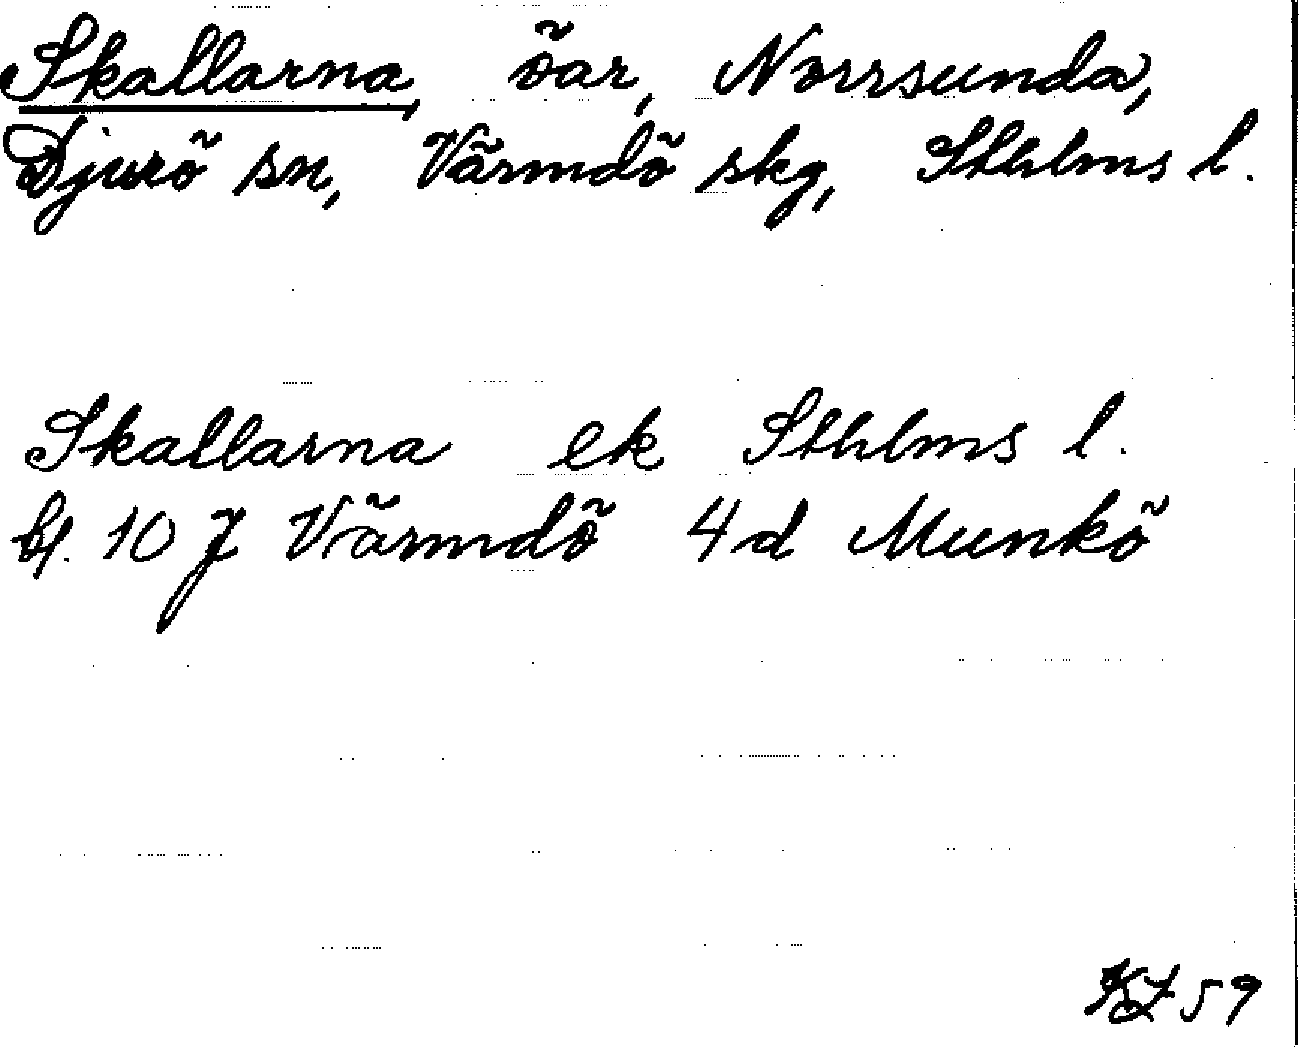 Skallarna, öar, Norrsunda,
Djurö sn, Värmdö skg, Sthlms l.
Skallarna ek Sthlms l.
bl. 10 J Värmdö 4 d Munkö
KZ 59